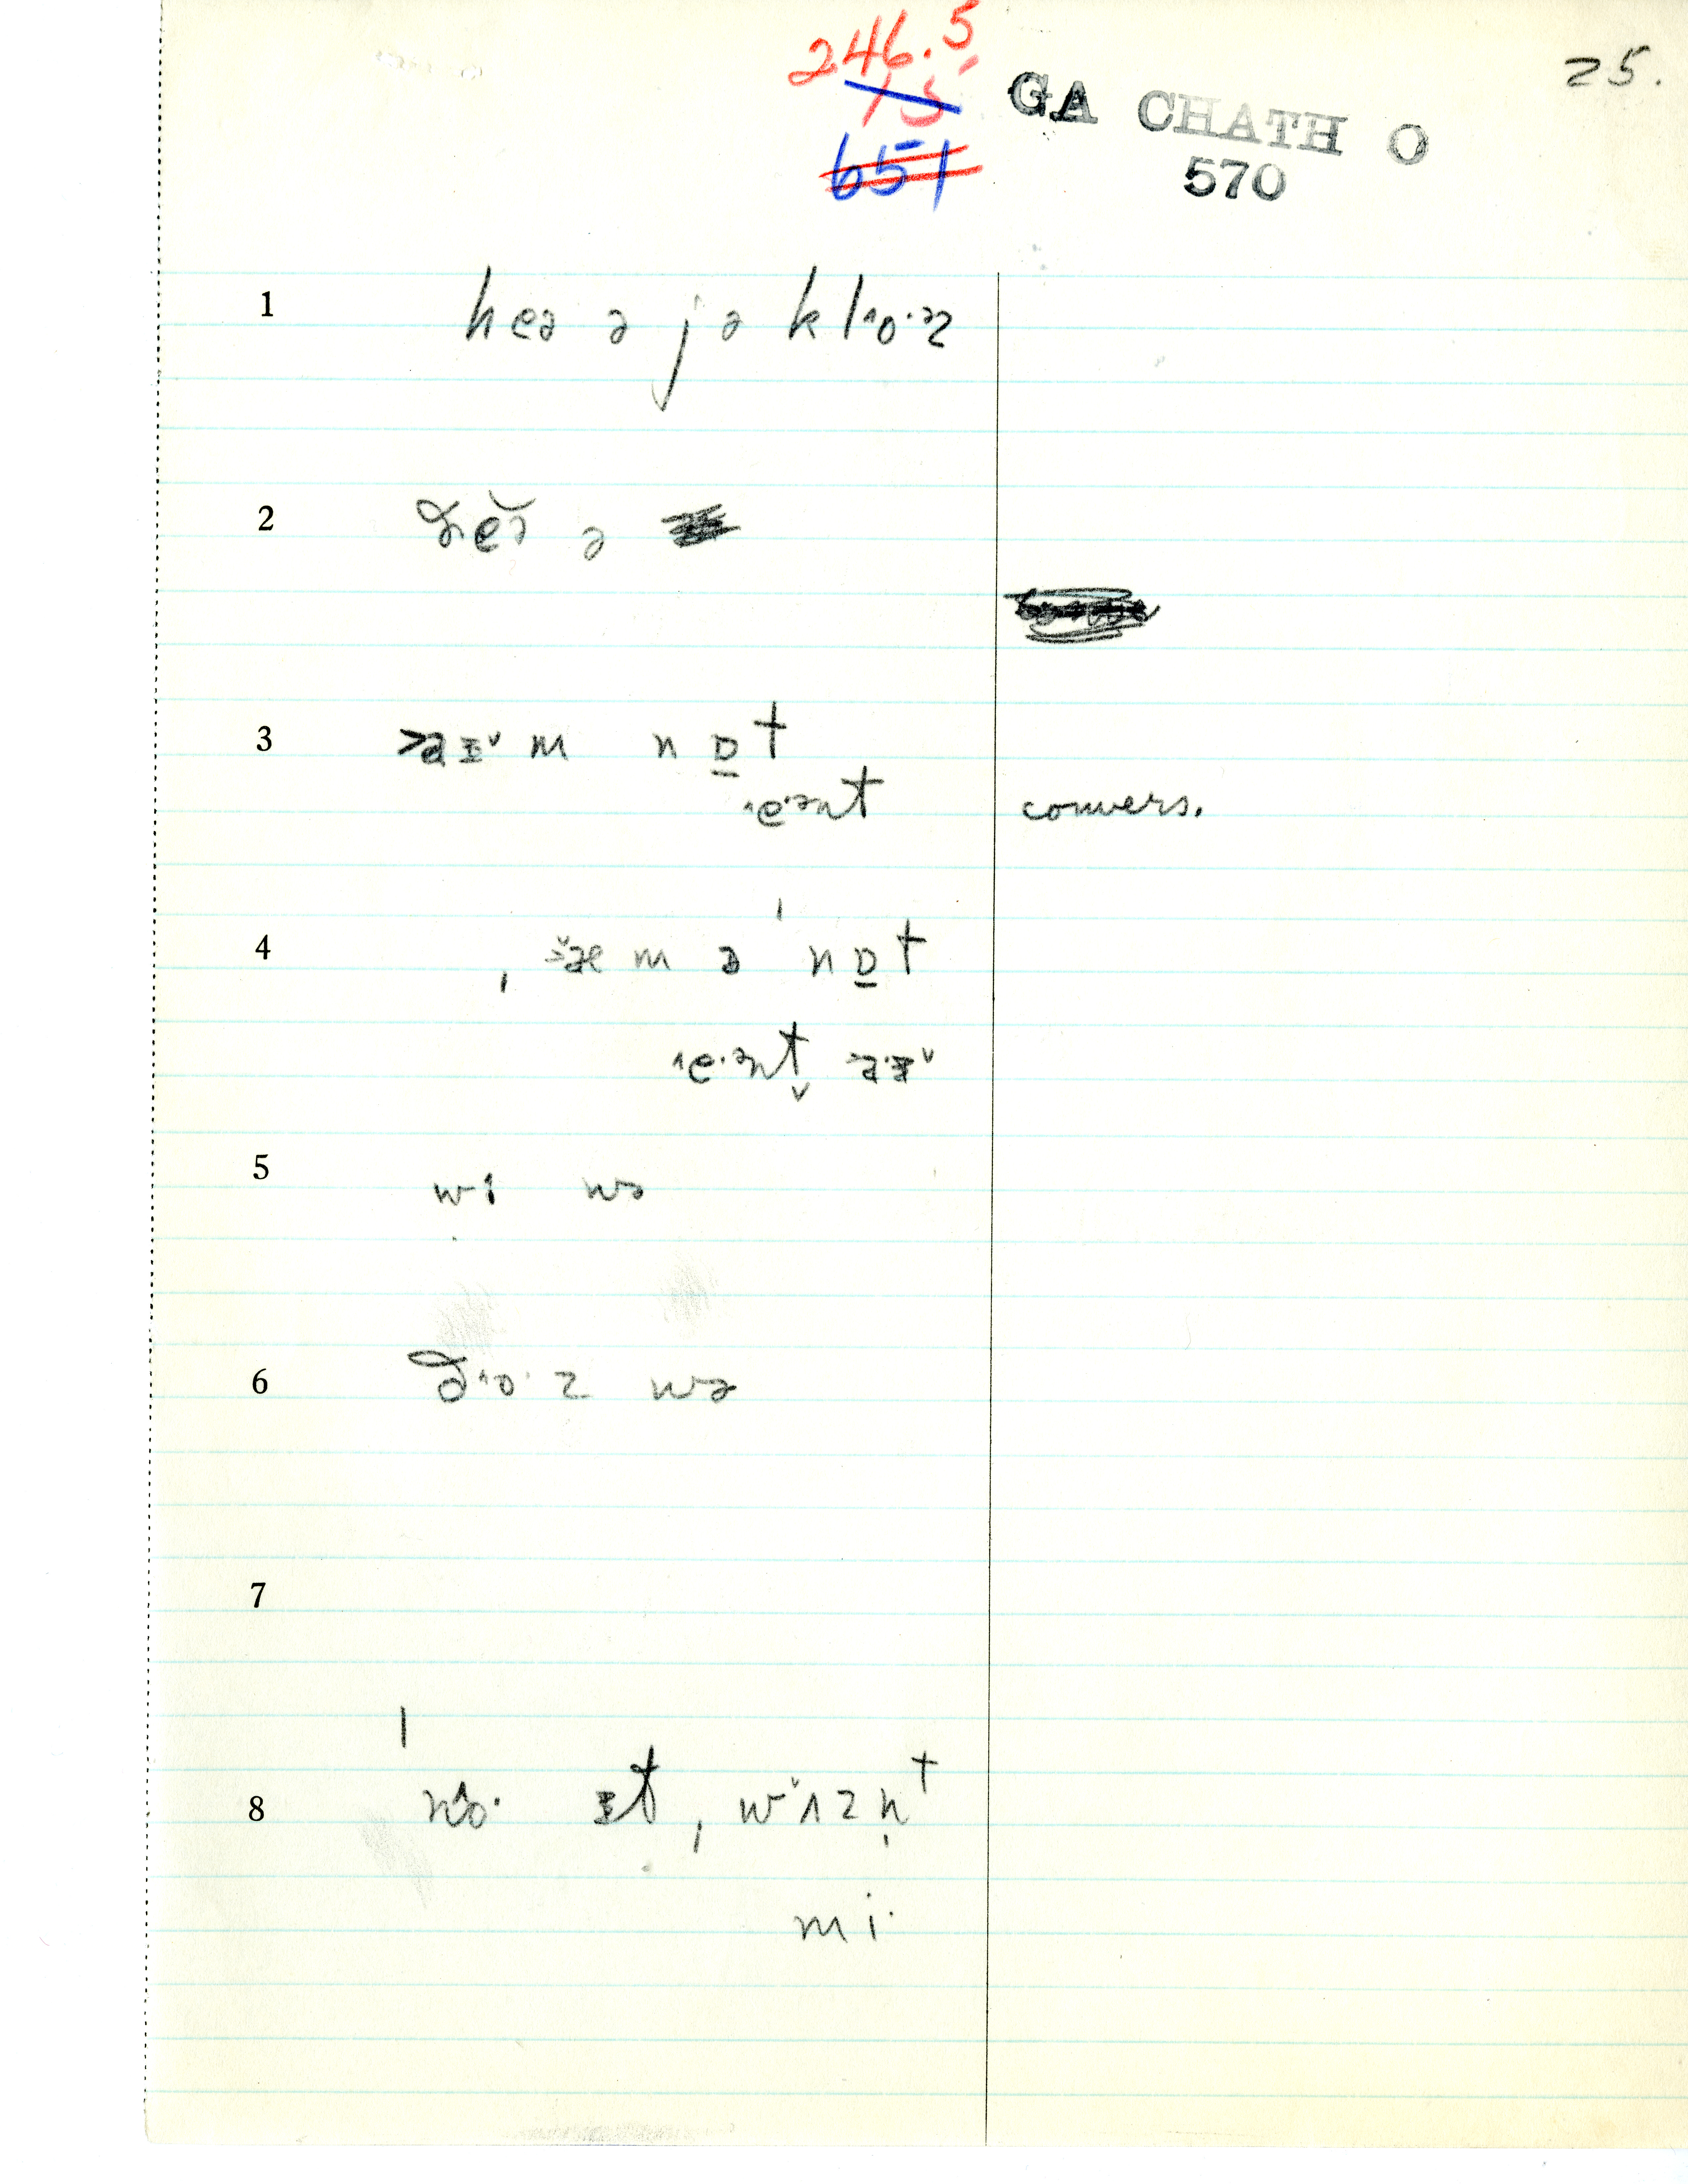 246.5
15
651
GA CHATH O
570
25.
1 heə ə jə kl^o·əz
2 ðeə̆ ə
3 >aɪ˅ m nɒ̱t
^e·ənt convers.
4 , æ m ə ˈnɒ̱t
^e·ənt >a·ɪ˅
5 wɪ wə
6 ð^o·z wə
7
8 ˈn^o· ɪt, wʌzn̩t
mi·